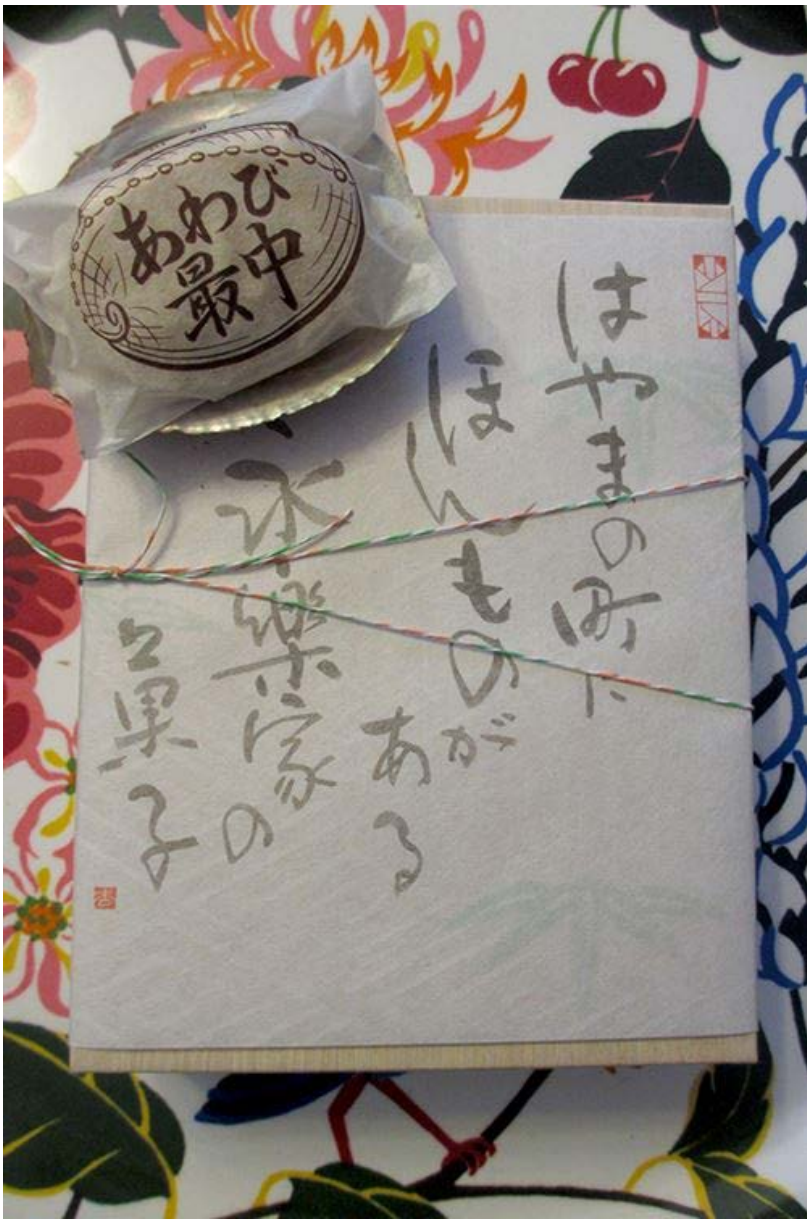 あわび
最中
はやまの町に
ほんものが
ある
永樂家の
菓子